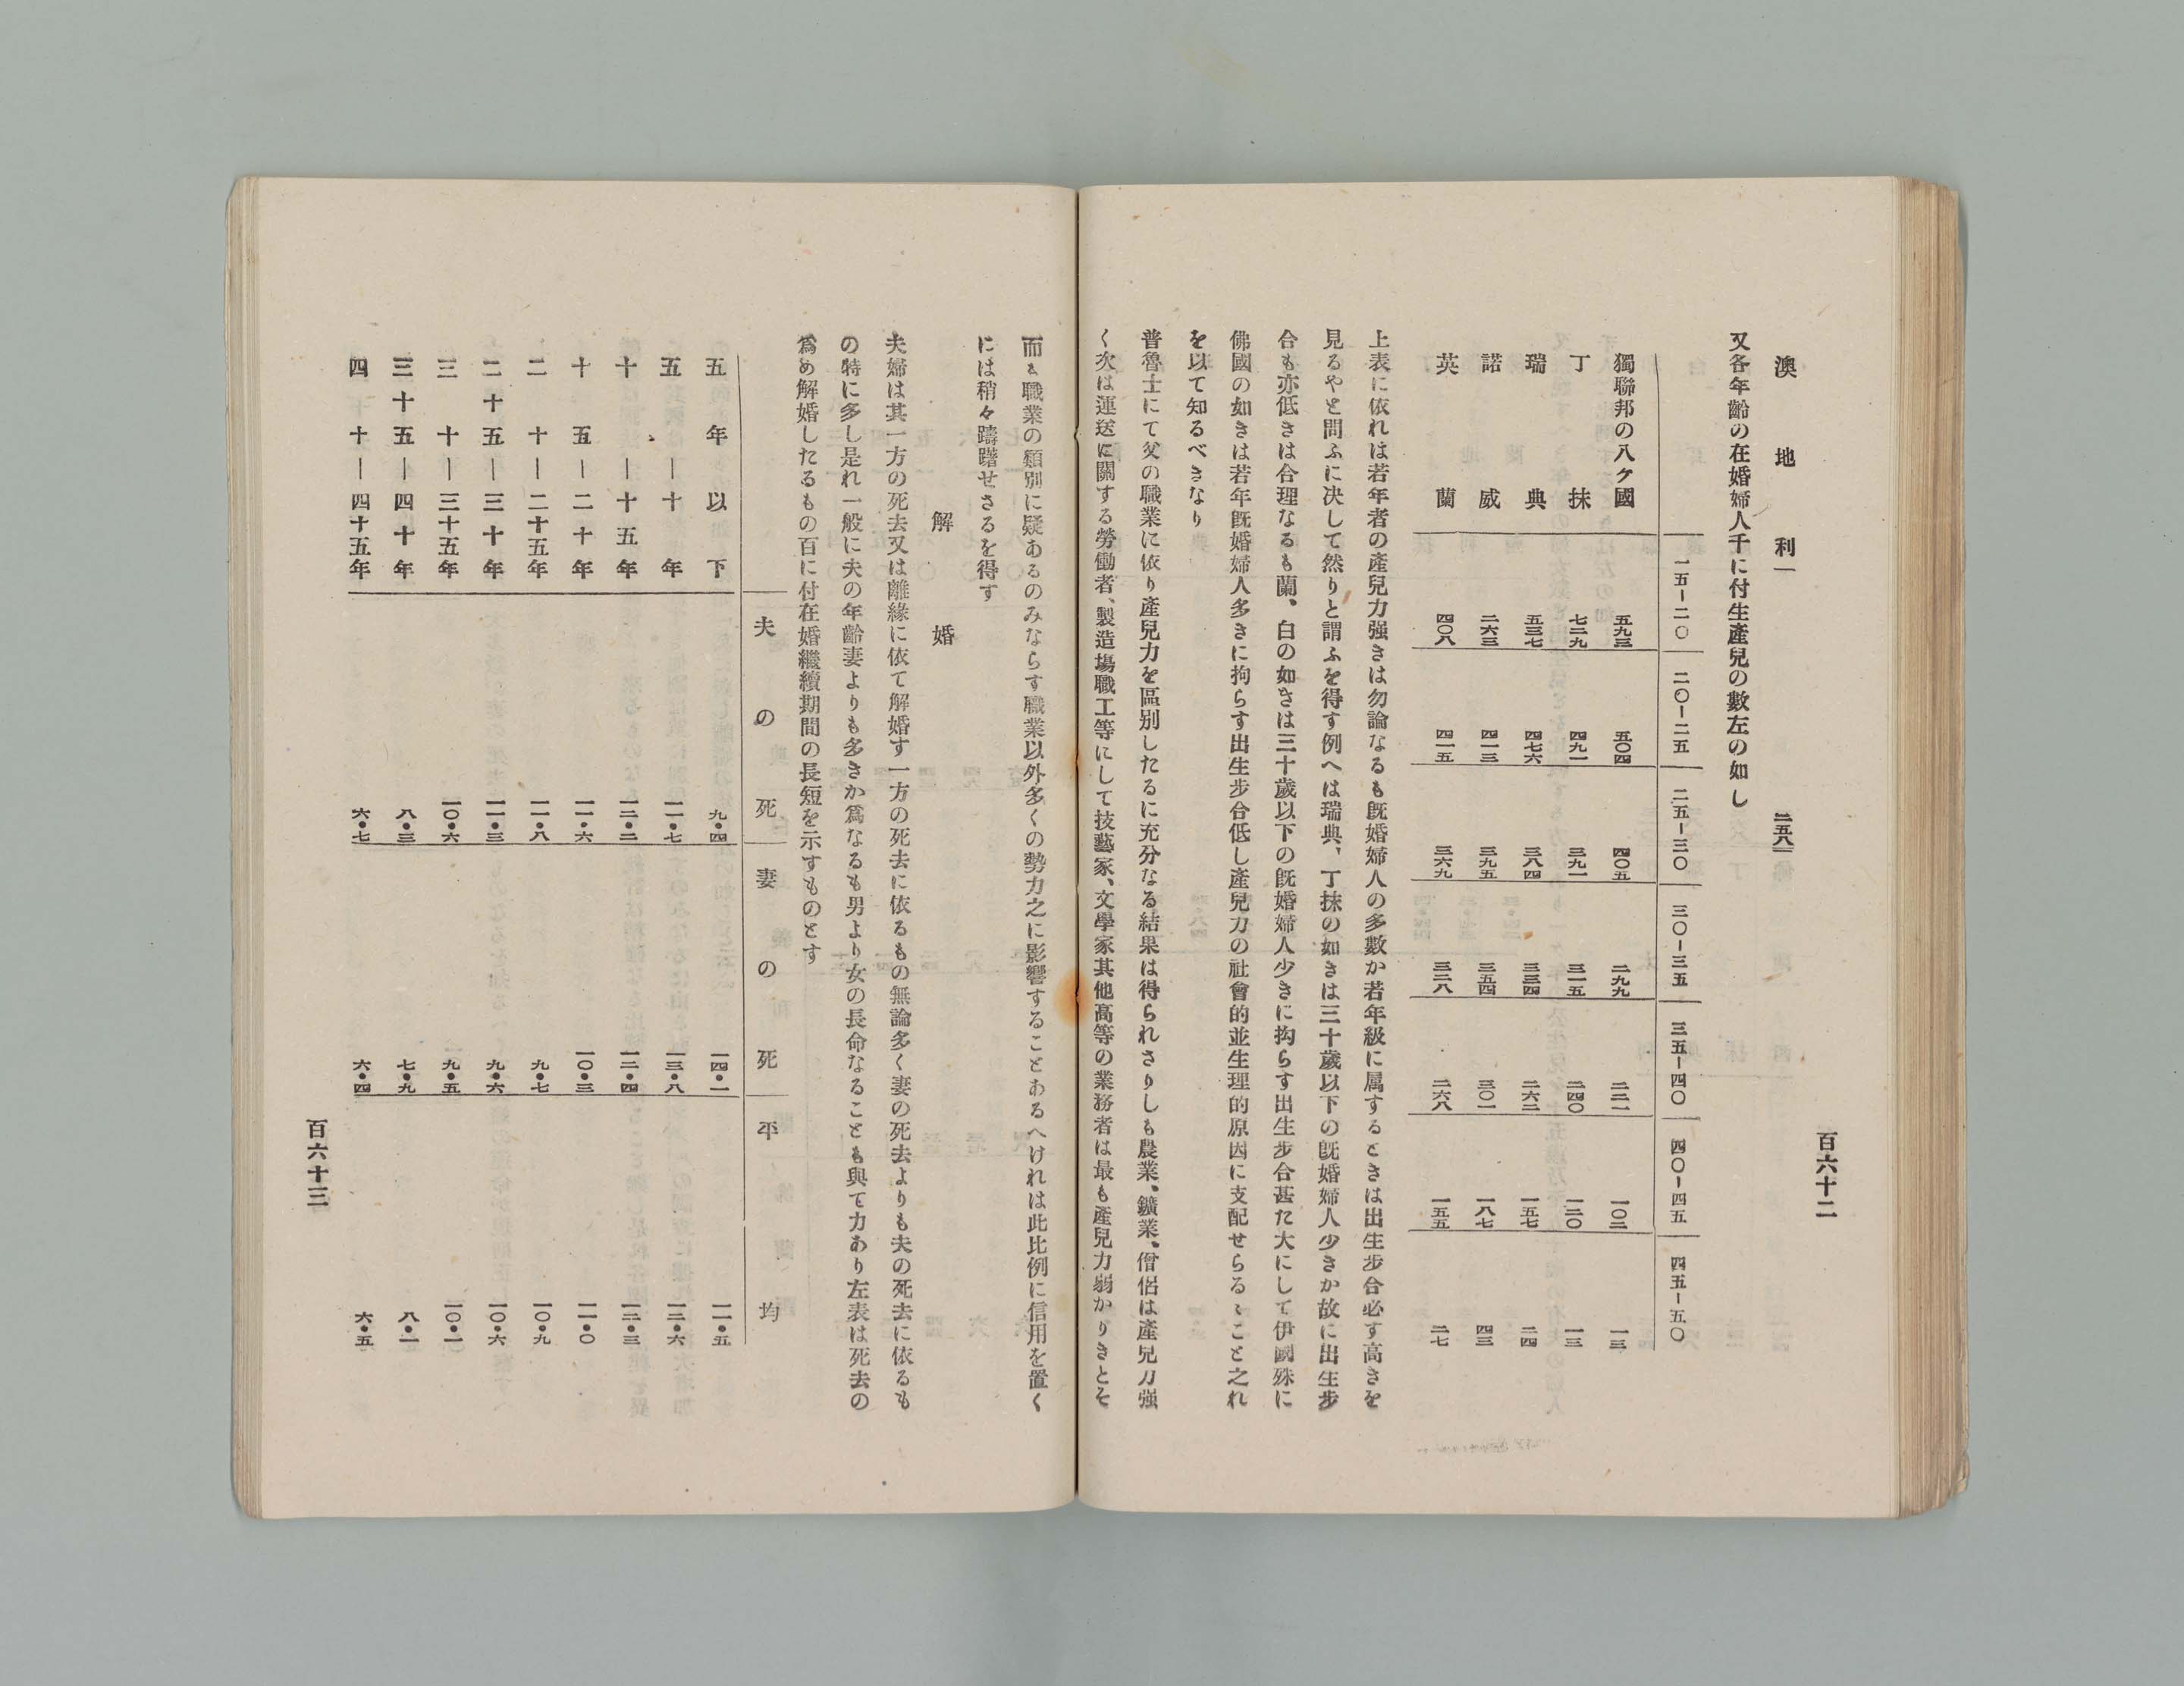 百六十二
澳地利 二五八
又各年齡の在婚婦人千に付生產兒の數左の如し
一五―二〇 二〇―二五 二五―三〇 三〇―三五 三五―四〇 四〇―四五 四五―五〇
獨聯邦の八ケ國 五九三 五〇四 四〇五 二九九 二二一 一〇二 一三
丁抹 七二九 四九一 三九一 三一五 二四〇 一二〇 一三
瑞典 五三七 四七六 三八四 三三四 二六二 一五七 二四
諾威 二六三 四一三 三九五 三五四 三〇一 一八七 四三
英蘭 四〇八 四一五 三六九 三二八 二六八 一五五 二七
上表に依れは若年者の產兒力強きは勿論なるも旣婚婦人の多數か若年級に属するときは出生步合必す高さを
見るやと問ふに决して然りと謂ふを得す例へは瑞典、丁抹の如きは三十歲以下の旣婚婦人少きか故に出生步
合も亦低きは合理なるも蘭、白の如きは三十歲以下の旣婚婦人少きに拘らす出生步合甚た大にして伊國殊に
佛國の如きは若年旣婚婦人多きに拘らす出生步合低し產兒力の社會的並生理的原因に支配せらるゝこと之れ
を以て知るべきなり
普魯士にて父の職業に依り產兒力を區別したるに充分なる結果は得られさりしも農業、鑛業、僧侶は產兒力強
く次は運送に關する勞働者、製造場職工等にして技藝家、文學家其他高等の業務者は最も產兒力弱かりきとそ
而も職業の類別に疑あるのみならす職業以外多くの勢力之に影響することあるへけれは此比例に信用を置く
には稍々躊躇せさるを得す
解婚
夫婦は其一方の死去又は離緣に依て解婚す一方の死去に依るもの無論多く妻の死去よりも夫の死去に依るも
の特に多し是れ一般に夫の年齡妻よりも多きか爲なるも男より女の長命なることも與て力あり左表は死去の
爲め解婚したるもの百に付在婚繼續期間の長短を示すものとす
夫の死 妻の死 平均
五年以下 九・四 一四・一 一一・五
五―十年 一一・七 一三・八 一二・六
十―十五年 一二・二 一二・四 一二・三
十五―二十年 一一・六 一〇・三 一一・〇
二十―二十五年 一一・八 九・七 一〇・九
二十五―三十年 一一・三 九・六 一〇・六
三十―三十五年 一〇・六 九・五 一〇・一
三十五―四十年 八・三 七・九 八・一
四十―四十五年 六・七 六・四 六・五
百六十三